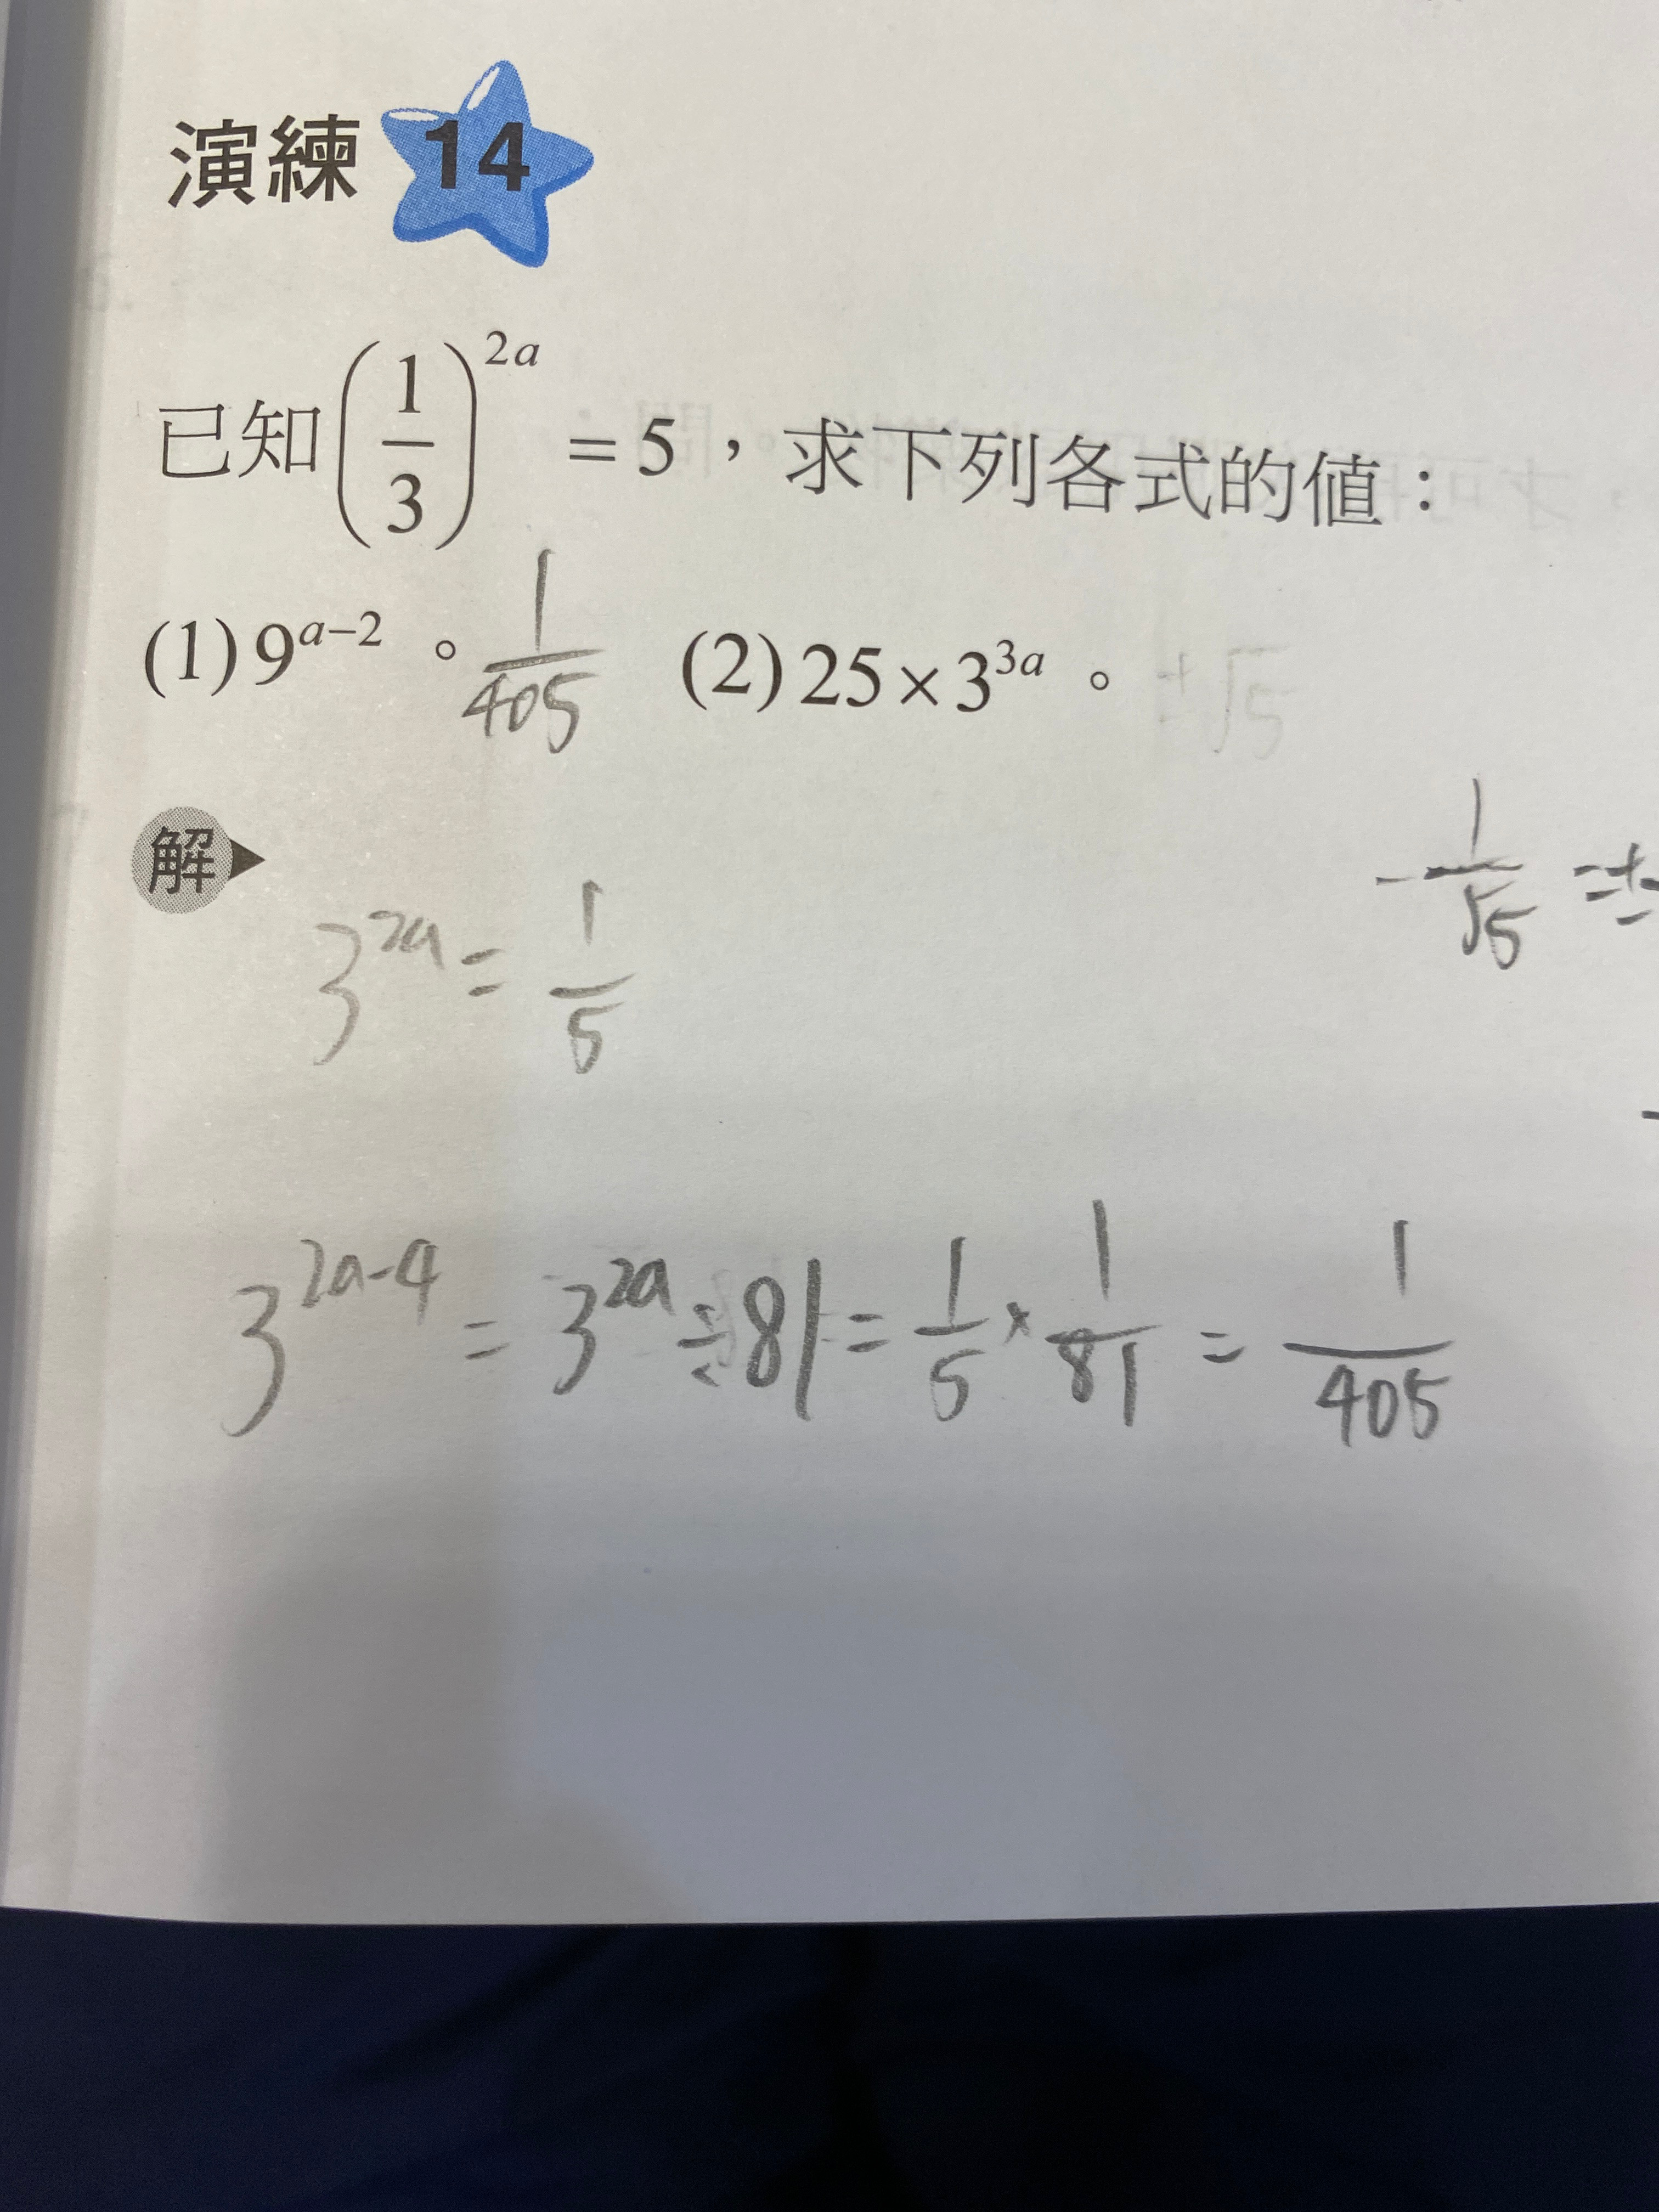 演練 14
已知(1/3)^{2a} = 5，求下列各式的值：
(1) 9^{a-2}。 1/405 (2) 25×3^{3a}。 ±√5
解
-1/√5 = ±
3^{2a} = 1/5
3^{2a-4} = 3^{2a} ÷ 81 = 1/5 × 1/81 = 1/405